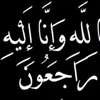 ا لله وَإِنَّا إِلَيْهِ
رَاجِعُونَ